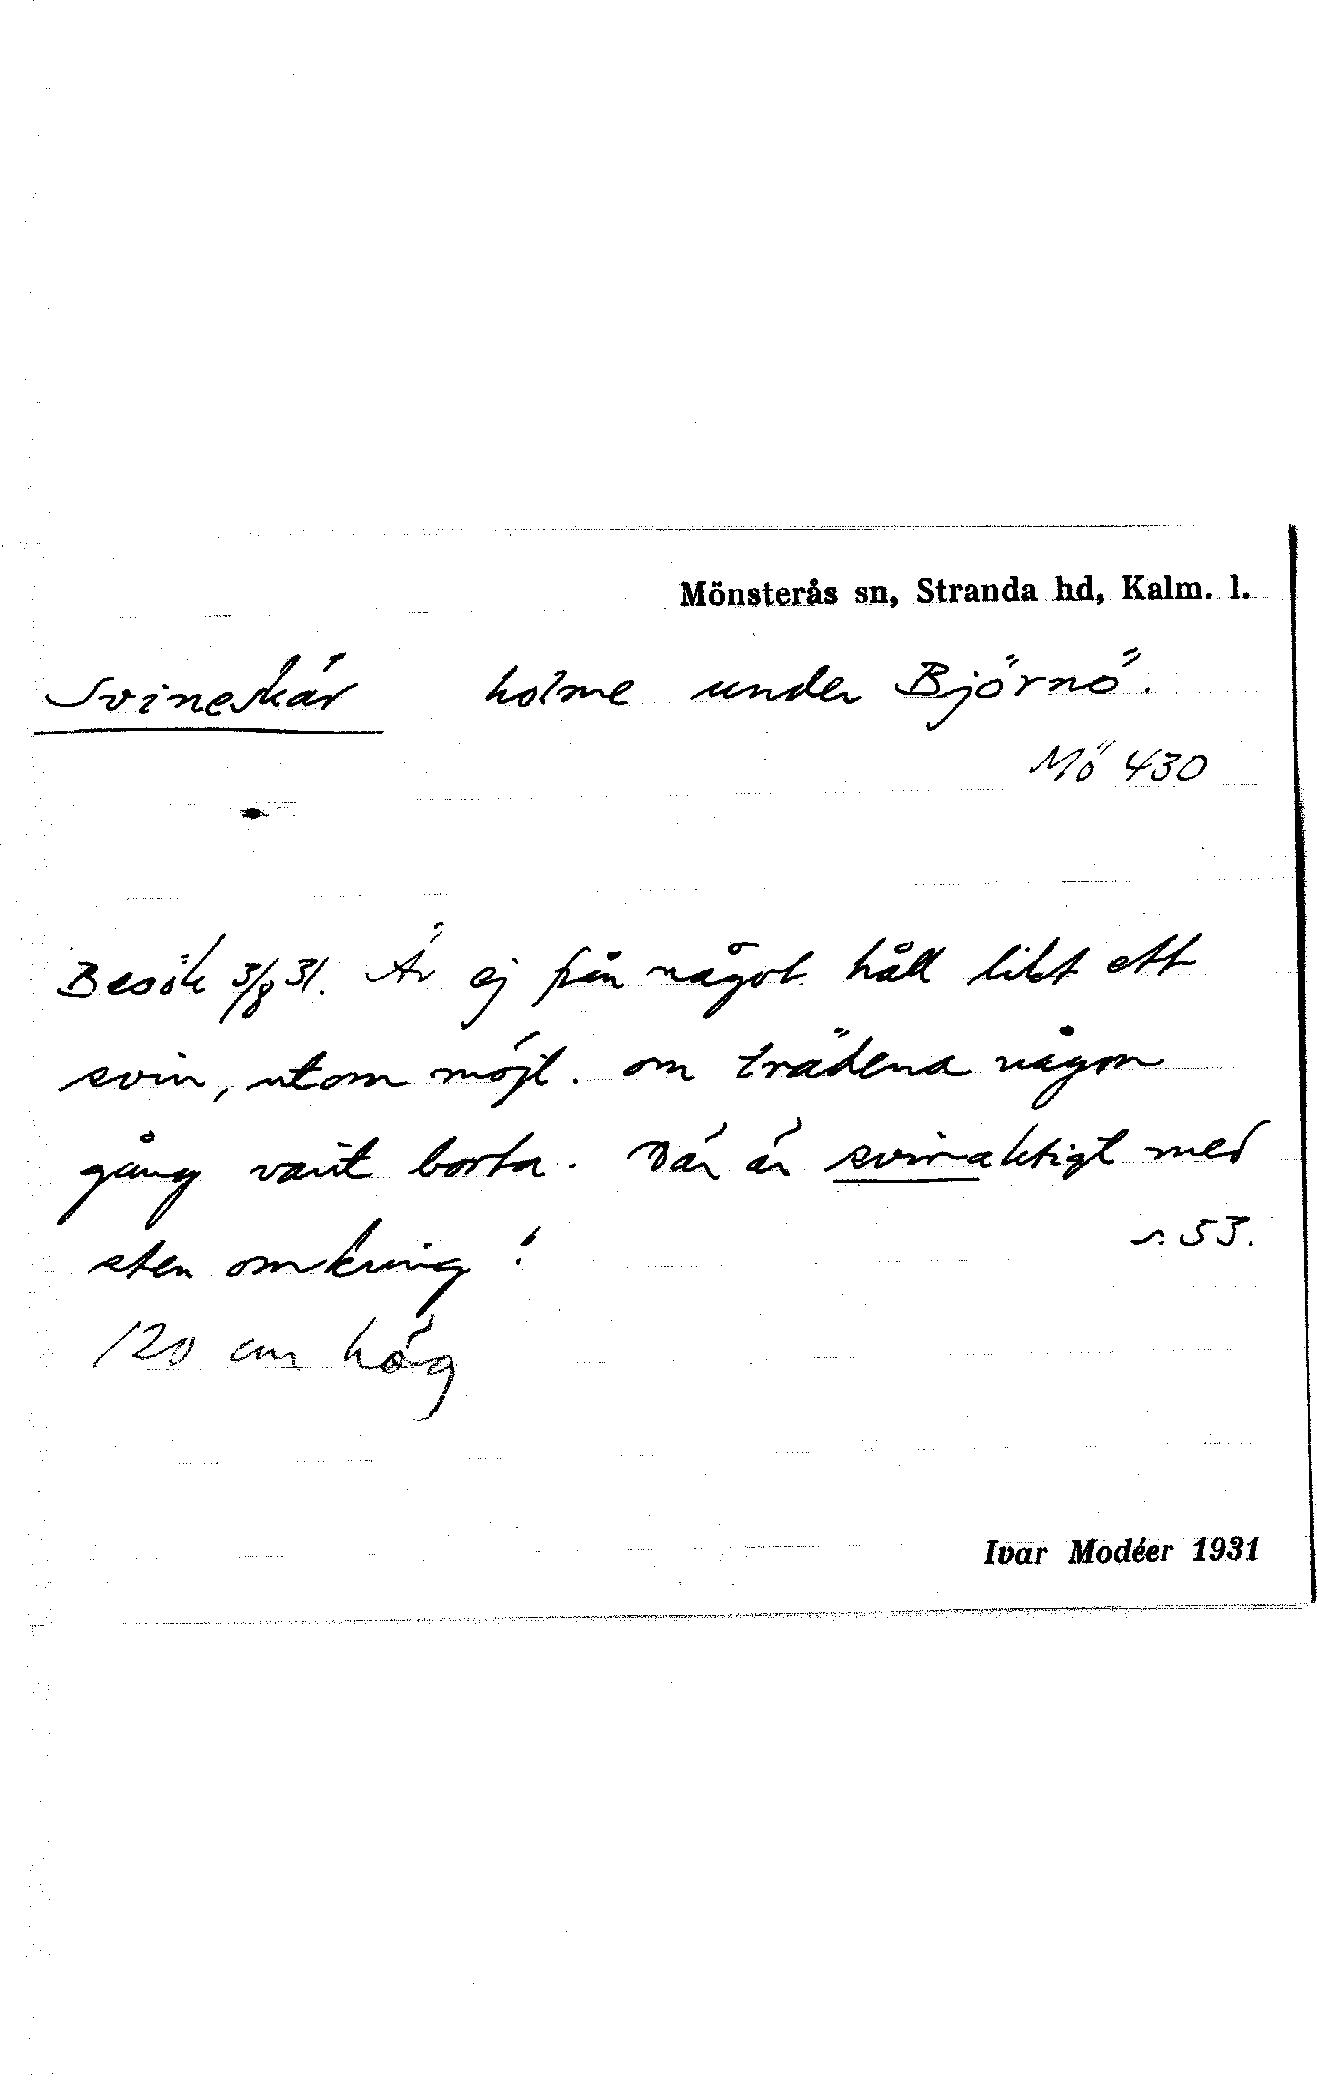 Mönsterås sn, Stranda hd, Kalm. l.
Svineskär holme under Björnö.
Mö 430
Besök 3/8 31. Är ej från något håll likt ett
svin, utom möjl. om trädena någon
gång varit borta. Där är svinaktigt med
sten omkring!
s. 53.
120 cm hög
Ivar Modéer 1931